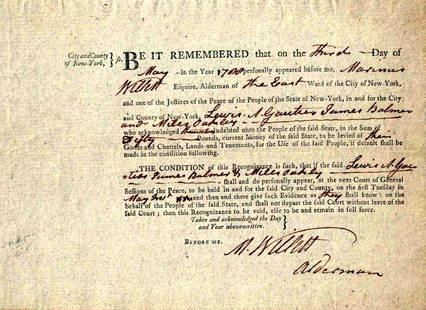 City and County } ss. BE IT REMEMBERED that on the Third Day of
of New-York,
May in the Year personally appeared before me, Marinus
Willett Esquire, Alderman of the East Ward of the City of New-York,
and one of the Justices of the Peace of the People of the State of New-York, in and for the City
and County of New-York Lewis A. Gautier James Balmer
and Miles Oakley
who acknowledged indebted unto the People of the said State, in the Sum of
Fifty Pounds, current Money of the said State, to be levied of their
Goods and Chattels, Lands and Tenements, for the Use of the said People, if default shall be
made in the condition following.
THE CONDITION of this Recognizance is such, that if the said Lewis A. Gau-
tier James Balmer & Miles Oakley
shall and do personally appear, at the next Court of General
Sessions of the Peace, to be held in and for the said City and County, on the first Tuesday in
May and then and there give such Evidence as they shall know; on the
behalf of the People of the said State, and shall not depart the said Court without leave of the
said Court; then this Recognizance to be void, else to be and remain in full force.
Taken and acknowledged the Day
and Year abovewritten.
BEFORE ME,
M. Willett
Alderman